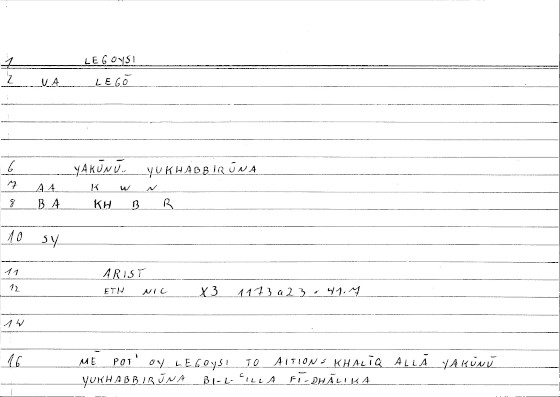 1 LEGOYSI
2 VA LEGŌ
6 YAKŪNŪ.. YUKHABBIRŪNA
7 AA K W N
8 BA KH B R
10 SY
11 ARIST
12 ETH NIC X3 1173a23 - 41.7
14
16 MĒ POT' OY LEGOYSI TO AITION = KHALĪQ ALLĀ YAKŪNŪ
YUKHABBIRŪNA BI-L-ʿILLA FĪ-DHĀLIKA